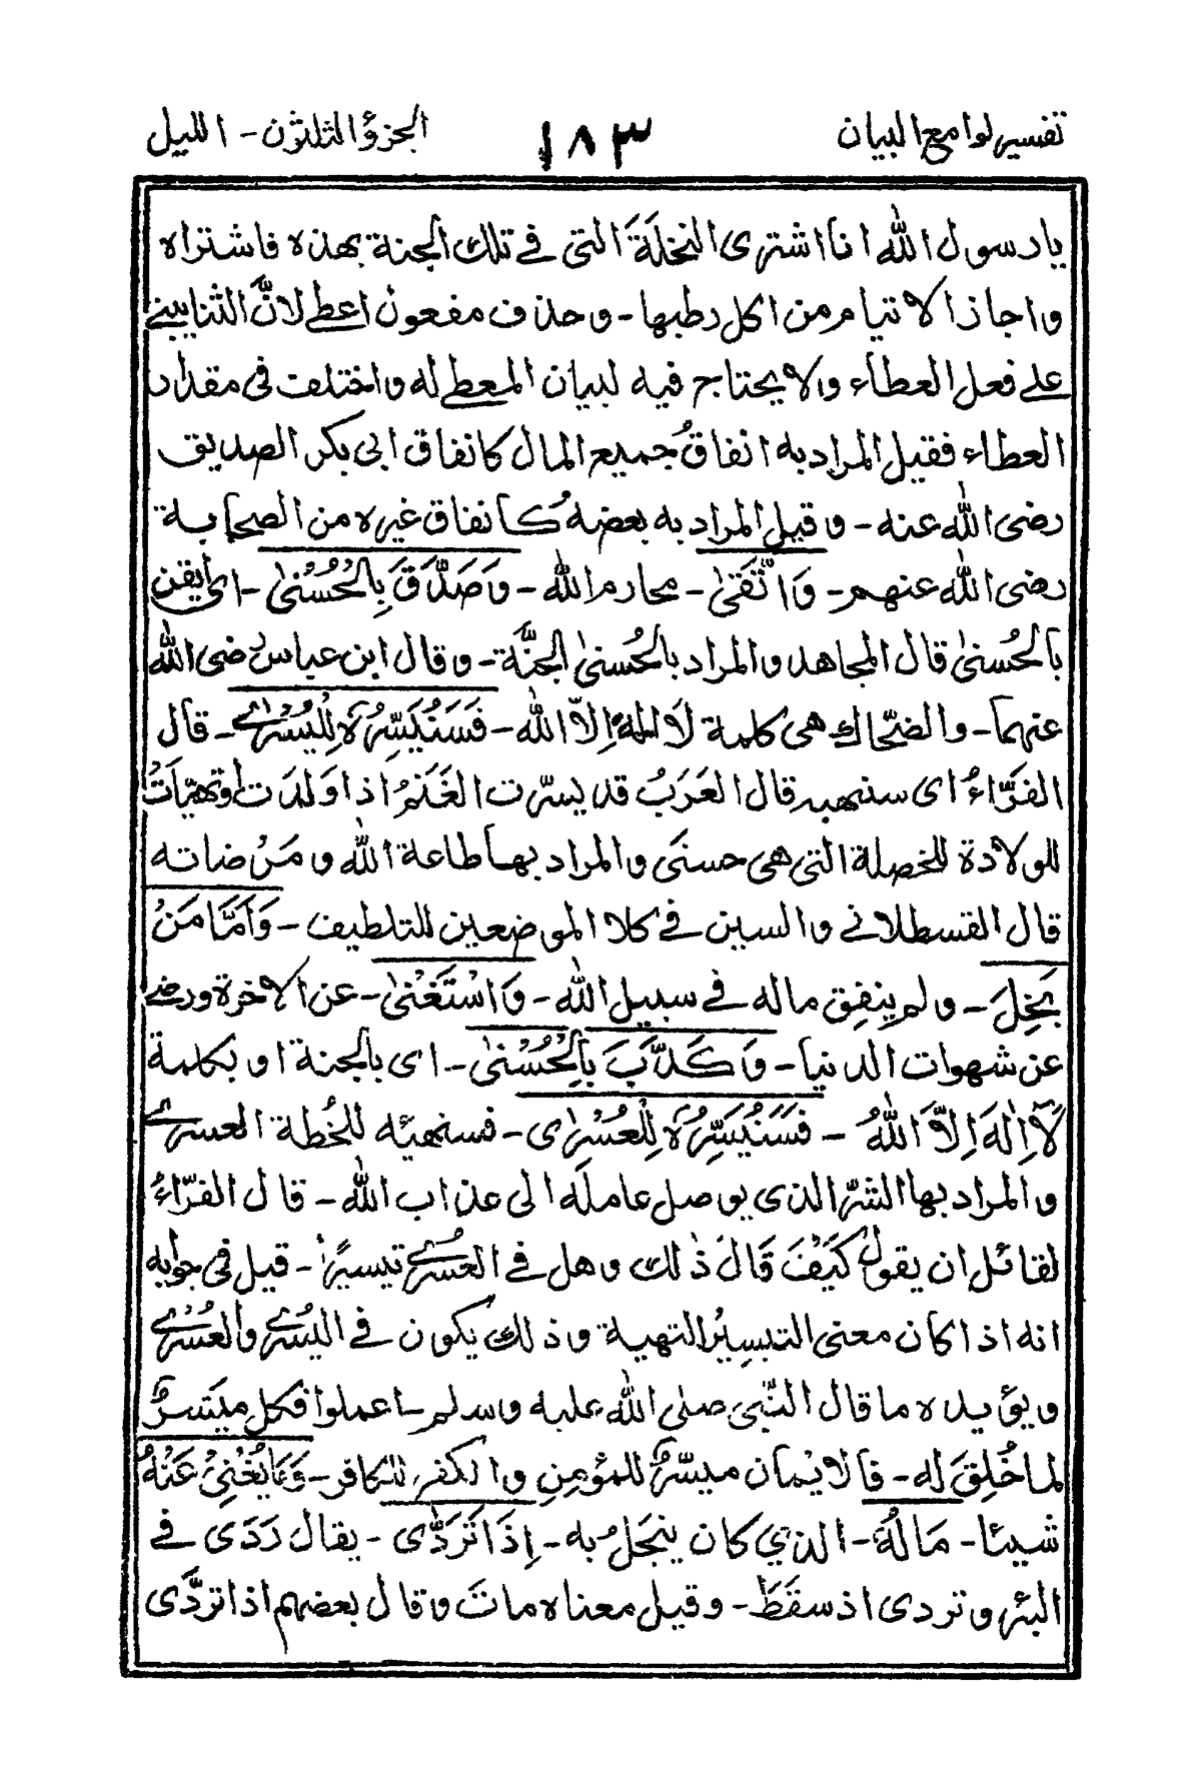 تفسير لوامع البيان ١٨٣ الجزؤ الثلثون - الليل
يا رسول الله انا اشترى النخلَةَ التى فى تلك الجنة بهذه فاشتراه
واجاز الايتام من اكل رطبها - وحذف مفعول اعطى لانَّ الثنا يبنى
على فعل العطاء ولا يحتاج فيه لبيان المعطى له واختلف فى مقدار
العطاء فقيل المراد به انفاقُ جميع المال كانفاق ابى بكر الصديق
رضى الله عنه - وقيل المراد به بعضهُ كانفاق غيره من الصحابة
رضى الله عنهم - وَاتَّقَىٰ - محارم الله - وَصَدَّقَ بِالْحُسْنىٰ - اى ايقن
بالحُسنىٰ قال المجاهد والمراد بالحُسنىٰ الجنَّة - وقال ابن عباس رضى الله
عنهما - والضحّاك هى كلمة لَا الٰهَ اِلَّا الله - فَسَنُيَسِّرُهٗ لِلْيُسْرٰى - قال
الفَرَّاءُ اى سنهيه قال العَرَبُ قد يسّرت الغَنَمُ اذا وَلَدَت او تهيّأتْ
للولادة للخصلة التى هى حسنَى والمراد بها طاعة الله ومَرْضاته
قال القسطلانى والسين فى كلا الموضعين للتلطيف - وَاَمَّا مَنْ
بَخِلَ - ولم يُنفِق ماله فى سبيل الله - وَاسْتَغْنىٰ - عن الآخرة ورضى
عن شهوات الدنيا - وَكَذَّبَ بِالْحُسْنىٰ - اى بالجنة او بكلمة
لَآ اِلٰهَ اِلَّا اللهُ - فَسَنُيَسِّرُهٗ لِلْعُسْرٰى - فسنهيئه للخُطة العسرى
والمراد بها الشرّ الذى يوصل عاملَه الى عذاب الله - قال الفرّاءُ
لقائل ان يقول كَيْفَ قَالَ ذٰلك وهل فى العُسرٰى تيسيرًا - قيل فى جوابه
انه اذا كان معنى التيسيرُ التهية وذلك يكون فى اليُسْرٰى والعُسْرٰى
ويؤيده ما قال النّبى صلى الله عليه وسلم - اعملوا فكل ميَسّرٌ
لما خُلِقَ له - فالايْمان ميسّرٌ للمؤمِنِ والكفر للكافر - وَمَا يُغْنِىْ عَنْهُ
شيئا - مَالُهٗ - الذي كان يبخَلُ به - اِذَا تَرَدّٰى - يقال رَدَى فى
البئر وتردى اذ سقَطَ - وقيل معناه ماتَ وقال بعضهم اذا تردّٰى